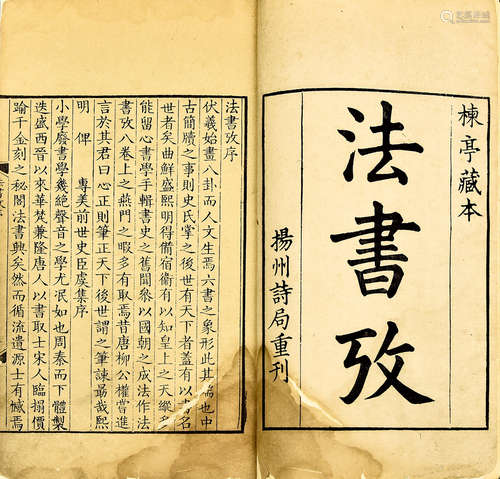 楝亭藏本
法書攷
揚州詩局重刊
法書攷序
伏羲始畫八卦而人文生焉六書之象形此其端也中
古簡牘之事則史氏掌之後世有天下者蓋有以書名
世者矣曲鮮盛熙明得備宿衛有以知皇上之天縱多
能留心書學手輯書史之舊聞參以國朝之成法作法
書攷八卷上之燕閒之暇多有取焉昔唐柳公權嘗進
言於其君曰心正則筆正天下後世謂之筆諫最哉熙
明俾專美前世史臣虞集序
小學廢書學幾絕聲音之學尤泯如也周秦而下體製
迭盛西晉以來華梵兼隆唐人以書取士宋人臨搨價
踰千金刻之秘閣法書興矣然而循流遺源士有憾焉